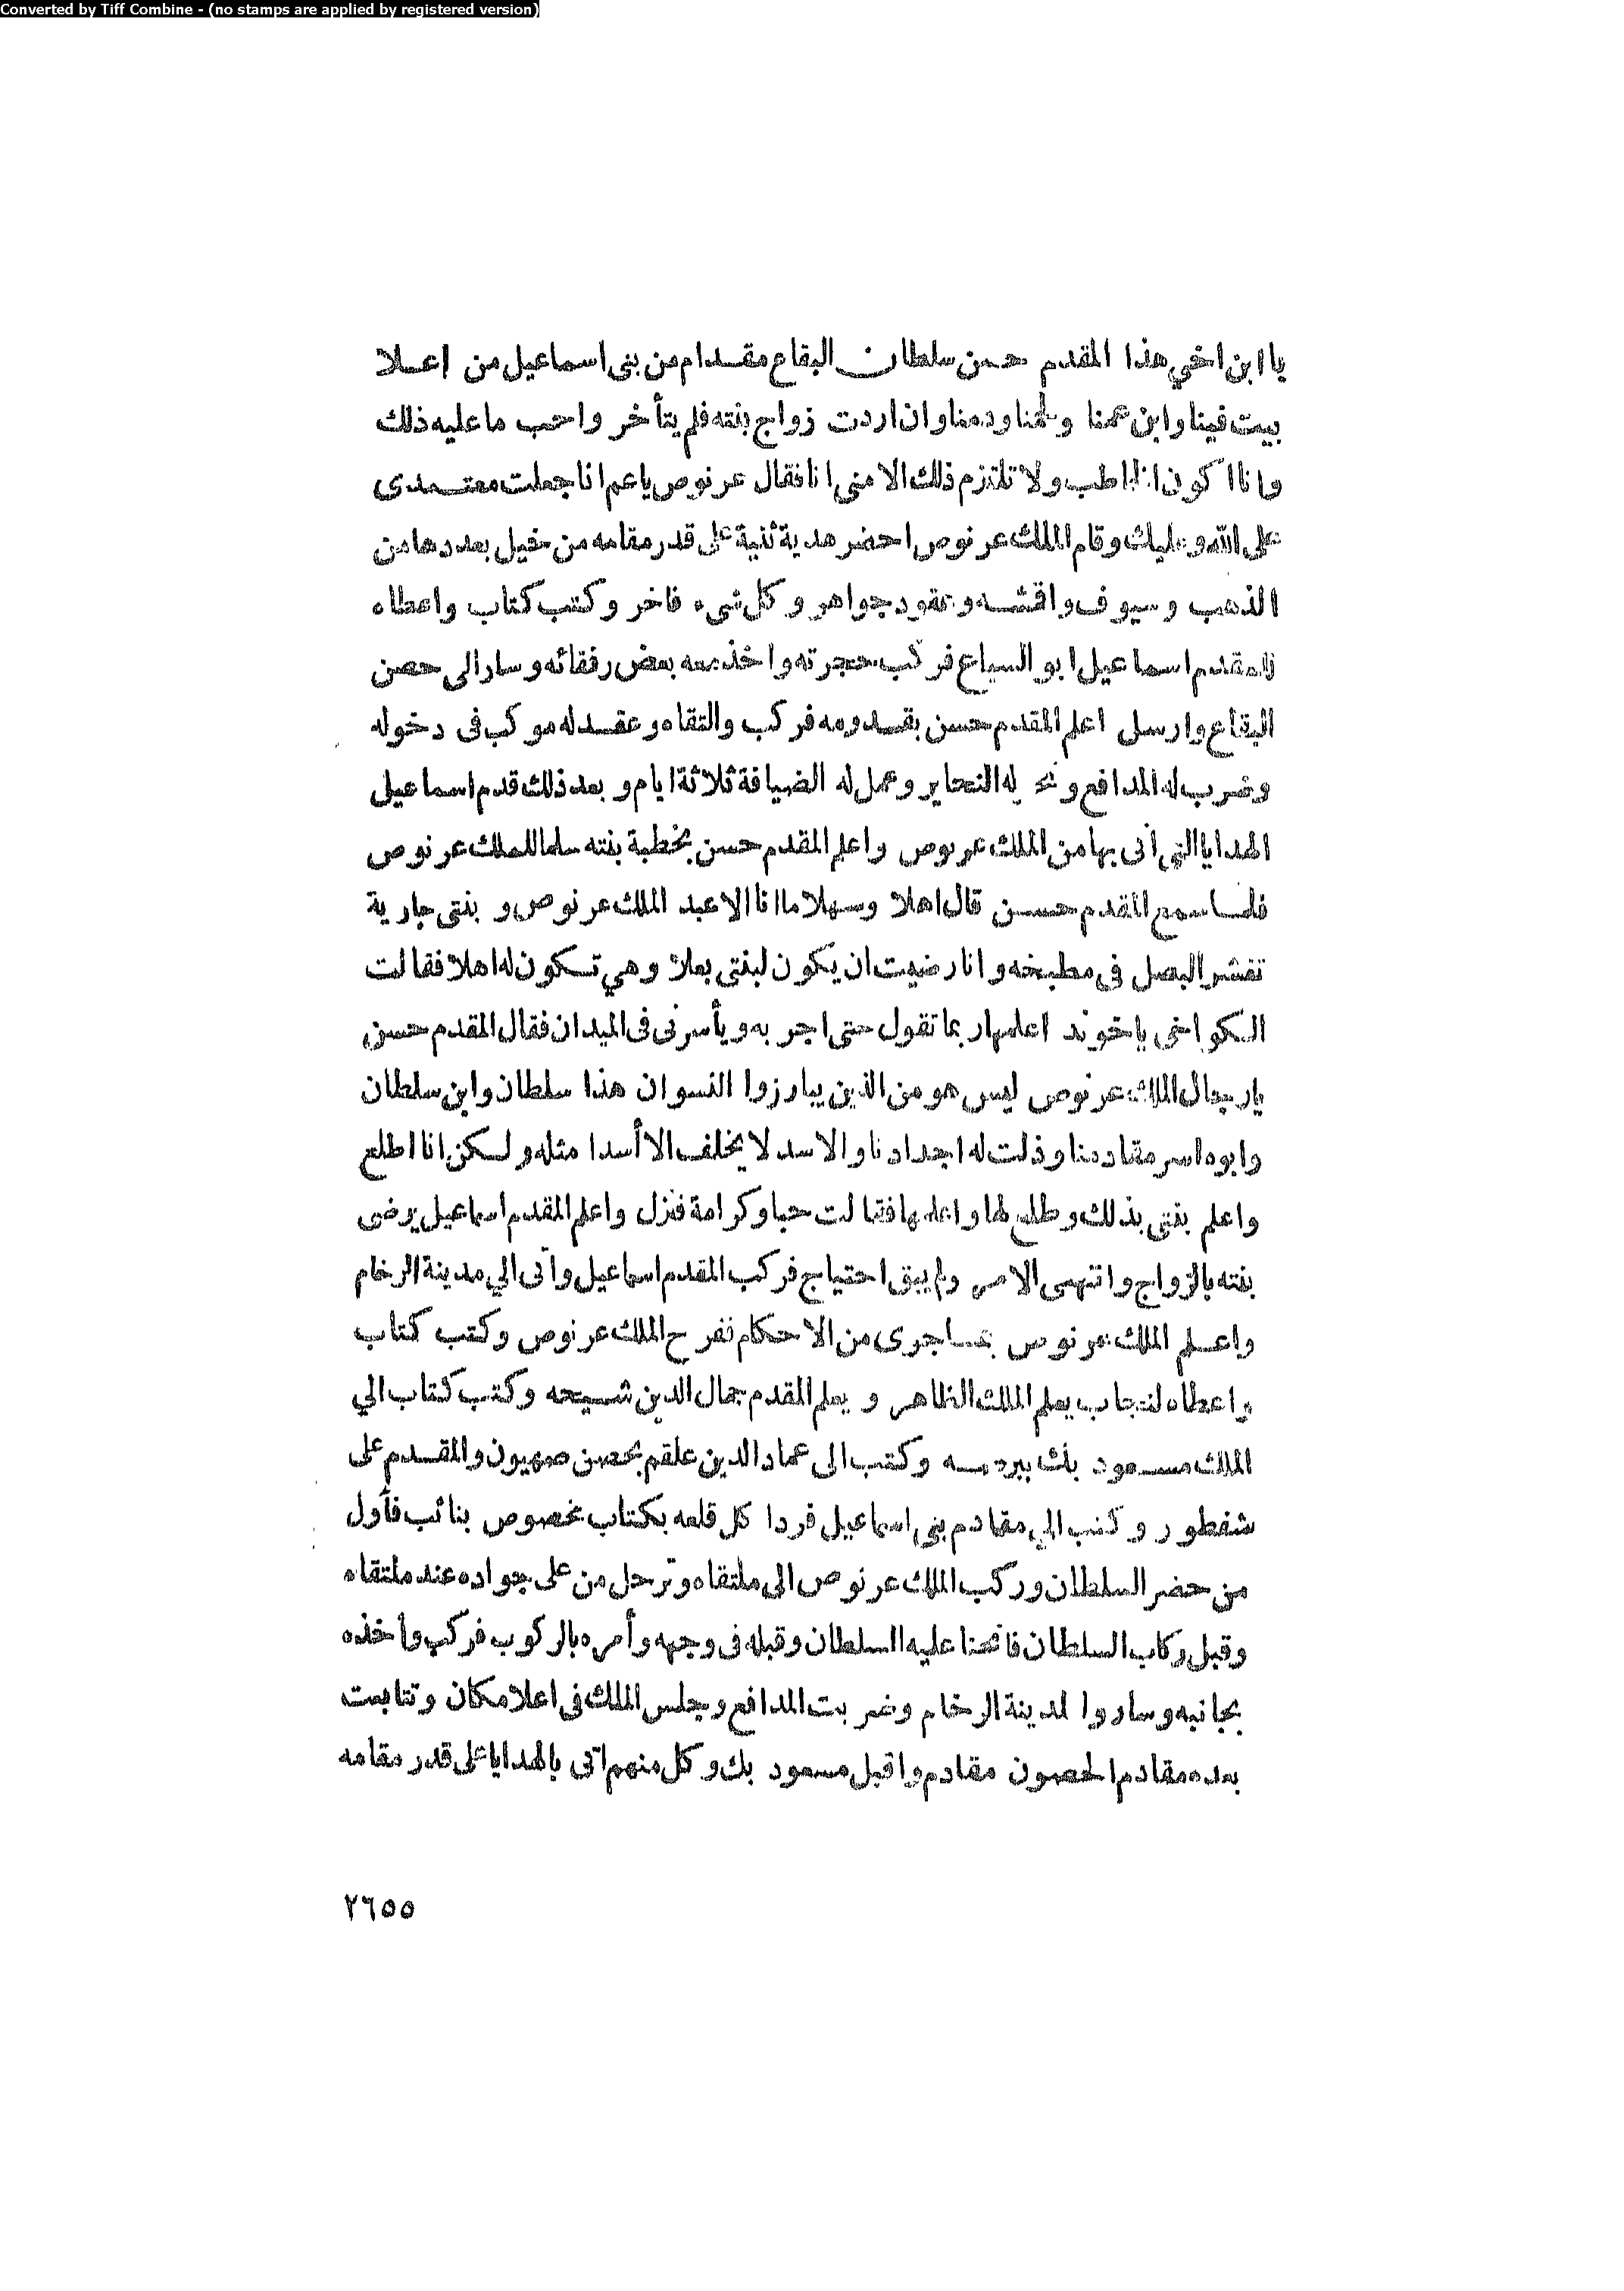 Converted by Tiff Combine - (no stamps are applied by registered version)
يا ابن اخي هذا المقدم حسن سلطان البقاع مقدام من بنى اسماعيل من اعلا
بيت فينا وابن عمنا ولحمنا ودمنا وان اردت زواج بنته فلم يتأخر واحب ما عليه ذلك
وانا اكون الخاطب ولا تلتزم ذلك الا منى انا فقال عرنوص ياعم انا جعلت معتمدى
على الله وعليك وقام الملك عرنوص احضر هدية ثنية على قدر مقامه من خيل بعددها من
الذهب وسيوف واقشه وعقود جواهر وكل شىء فاخر وكتب كتاب واعطاه
للمقدم اسماعيل ابو السباع فركب حجرته واخذ معه بعض رفقائه وسار الى حصن
البقاع وارسل اعلم المقدم حسن بقدومه فركب والتقاه وعقد له موكب فى دخوله
وضرب له المدافع له النحاير وعمل له الضيافة ثلاثة ايام وبعد ذلك قدم اسماعيل
الهدايا التي اتى بها من الملك عرنوص واعلم المقدم حسن بخطبة بنته سلما للملك عرنوص
فلما سمع المقدم حسن قال اهلا وسهلا ما انا الا عبد الملك عرنوص وبنتى جارية
تقشر البصل فى مطبخه وانا رضيت ان يكون لبنتى بعلا وهي تكون له اهلا فقالت
الكواخى ياخوند اعلمها ربما تقول حتى اجربه ويأسرنى فى الميدان فقال المقدم حسن
يارجال الملك عرنوص ليس هو من الذين يبارزوا النسوان هذا سلطان وابن سلطان
وابوه اسر مقادمنا وذلت له اجدادنا والاسد لا يخلف الا أسدا مثله ولكن انا اطلع
واعلم بنتى بذلك وطلع لها واعلمها فقالت حبا وكرامة فنزل واعلم المقدم اسماعيل برضى
بنته بالزواج وانتهى الامر ولم يبق احتياج فركب المقدم اسماعيل وأتى الي مدينة الرخام
واعلم الملك عرنوص بما جرى من الاحكام ففرح الملك عرنوص وكتب كتاب
واعطاه لنجاب يعلم الملك الظاهر ويعلم المقدم جمال الدين شيحه وكتب كتاب الي
الملك مسعود بك وكتب الى عماد الدين علقم بحصن صهيون والمقدم على
شفطور وكتب الي مقادم بنى اسماعيل فردا كل قلعه بكتاب مخصوص بنائب فأول
من حضر السلطان وركب الملك عرنوص الى ملتقاه وترحل من على جواده عند ملتقاه
وقبل ركاب السلطان فانحنا عليه السلطان وقبله فى وجهه وأمره بالركوب فركب وأخذه
بجانبه وساروا لمدينة الرخام وضربت المدافع وجلس الملك فى اعلا مكان وتتابعت
بعده مقادم الحصون مقادم واقبل مسعود بك وكل منهم اتى بالهدايا على قدر مقامه
٢٦٥٥